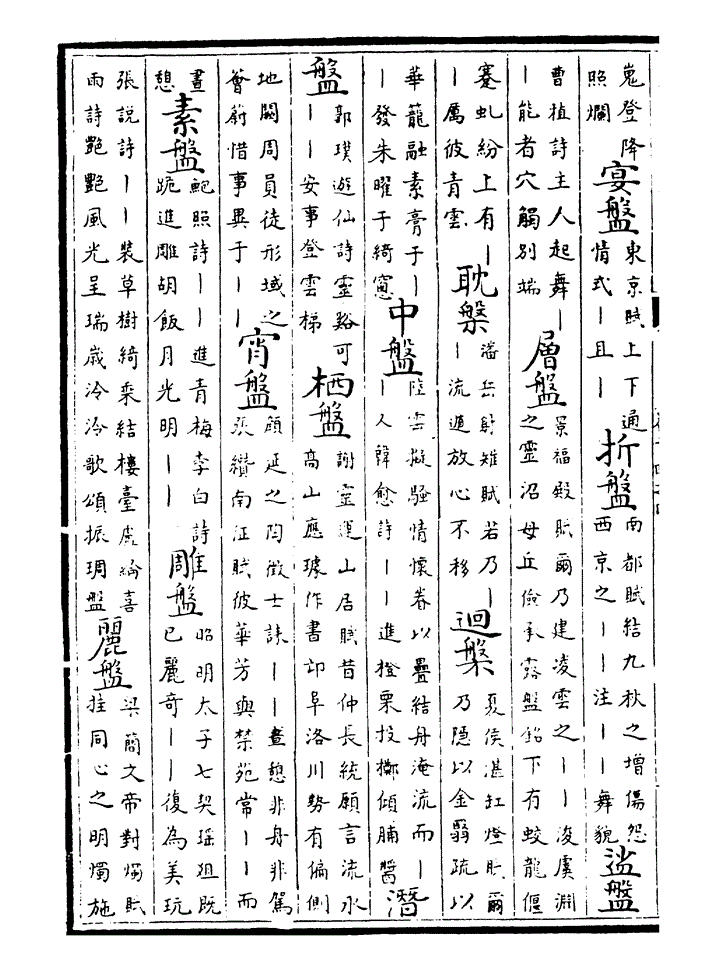 嵬登降照爛宴盤東京賦上下通情式丨且丨折盤南都賦結九秋之增傷怨西京之丨丨注丨丨舞貌娑盤
曹植詩主人起舞丨丨能者穴觸別端層盤景福殿賦爾乃建凌雲之丨丨浚虞淵之靈沼毋丘儉承露盤銘下有蛟龍偃
蹇虬紛上有丨丨厲彼青雲耽槃潘岳射雉賦若乃丨丨流遁放心不移迴槃夏侯湛缸燈賦爾乃隱以金翳疏以
華籠融素膏于丨丨發朱曜于綺窻中盤陸雲擬騷情懷眷以疊結舟淹流而丨丨人韓愈詩丨丨進橙栗投擲傾脯醬潛
盤郭璞遊仙詩靈谿可丨丨安事登雲梯栖盤謝靈運山居賦昔仲長統願言流水高山應璩作書邙阜洛川勢有偏側
地闕周員徒形域之薈蔚惜事異于丨丨宵盤顏延之陶徵士誄丨丨晝憩非舟非駕張纘南征賦彼華芳與禁苑常丨丨而
晝憩素盤鮑照詩丨丨進青梅李白詩跪進雕胡飯月光明丨丨雕盤昭明太子七契瑶俎既已麗奇丨丨復為美玩
張說詩丨丨裝草樹綺乘結樓臺盧綸喜雨詩艷艷風光呈瑞歲泠泠歌頌振琱盤麗盤梁簡文帝對燭賦挂同心之明燭施